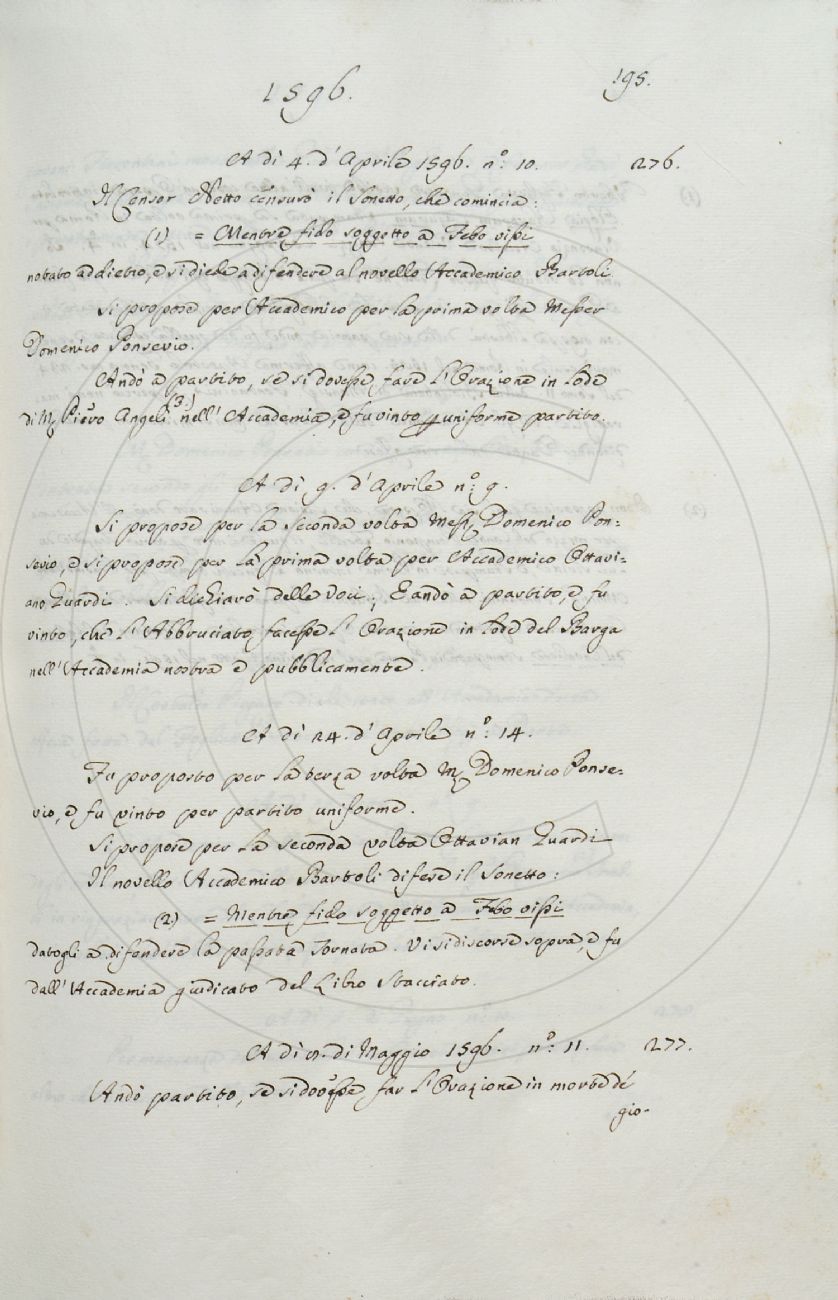 1596.
195.
A dì 4. d'Aprile 1596. n.º 10.
276.
Il Censor Netto censurò il Sonetto, che comincia:
(1) = Mentre fido soggetto a Febo vissi
notato addietro, e si diede a difendere al novello Accademico Bartoli
Si propose per Accademico per la prima volta Messer
Domenico Ponsevio.
Andò a partito, se si dovesse fare l'Orazione in lode
di M. Piero Angeli (3.) nell'Accademia, e fu vinto p uniforme partito.
A dì 9. d'Aprile n.º 9.
Si propose per la seconda volta Mess. Domenico Pon:
sevio, e si propose per la prima volta per Accademico Ottavi:
ano Luardi. Si dichiarò delle Voci; E andò a partito, e fu
vinto, che l'Abbruciato facesse l'Orazione in lode del Barga
nell'Accademia nostra e pubblicamente.
A dì 24. d'Aprile n.º 14.
Fu proposto per la terza volta M. Domenico Ponse:
vio, e fu vinto per partito uniforme.
Si propose per la seconda volta Ottavian Luardi
Il novello Accademico Bartoli difese il Sonetto:
(2) = Mentre fido soggetto a Febo vissi
datogli a difendere la passata Tornata. Vi si discorse sopra, e fu
dall'Accademia giudicato del Libro Stacciato.
A dì di Maggio 1596. n.º 11.
277.
Andò partito, se si dovesse far l'Orazione in morte de
gio-